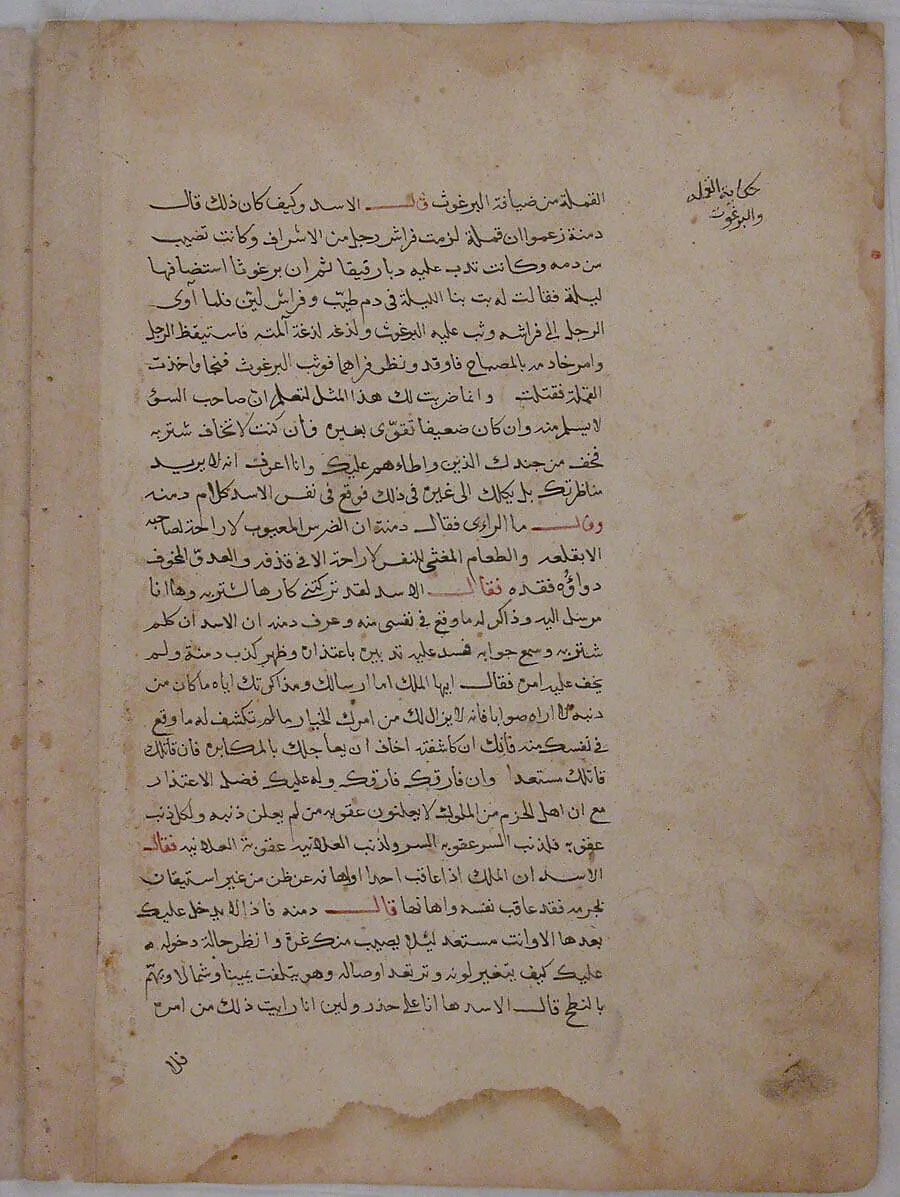 حكاية القملة
والبرغوث
القملة من ضيافة البرغوث قال الاسد وكيف كان ذلك قال
دمنة زعموا ان قملة لزمت فراش رجل من الاشراف وكانت تصيب
من دمه وكانت تدب عليه دبا رقيقا ثم ان برغوثا استضافها
ليلة فقالت له بت بنا الليلة في دم طيب وفراش لين فلما آوى
الرجل الى فراشه وثب عليه البرغوث ولذغه لذغة آلمته فاستيقظ الرجل
وامر خادمه بالمصباح فاوقد ونظر فراهما فوثب البرغوث فنجا واخذت
القملة فقتلت وانما ضربت لك هذا المثل لتعلم ان صاحب السؤ
لا يسلم منه وان كان ضعيفا تقوى بغيره فان كنت لا تخاف شتربه
فخف من جندك الذين واطاءهم عليك وانا اعرف انه لا يريد
مناظرتك بل يكلك الى غيره في ذلك فوقع في نفس الاسد كلام دمنه
وقال ما الراى فقال دمنة ان الضرس المعيوب لا راحة لصاحبه
الا بقلعه والطعام المغثى للنفس لا راحة الا في قذفه والعدو المخوف
دواؤه فقده فقال الاسد لقد تركتني كارها لشتربه وها انا
مرسل اليه وذاكر له ما وقع في نفسي منه وعرف دمنه ان الاسد ان كلم
شتربه وسمع جوابه فسد عليه تدبيره باعتذاره وظهر كذب دمنة ولم
يخف عليه امره فقال ايها الملك اما ارسالك ومذاكرتك اياه ما كان من
ذنبه لا اراه صوابا فانه لا يزال لك من امرك الخيار ما لم تكشف له ما وقع
في نفسك منه فانك ان كاشفته اخاف ان يعاجلك بالمكابره فان قاتلك
قاتلك مستعدا وان فارقك فارقك وله عليك فضل الاعتذار
مع ان اهل الحزم من الملوك لا يعلنون عقوبه من لم يعلن ذنبه ولكل ذنب
عقوبه فلذنب السر عقوبه السر ولذنب العلانيه عقوبة العلانيه فقال
الاسد ان الملك اذا عاقب احدا او اهانه عن ظن من غير استيقان
بجرمه فقد عاقب نفسه واهانها قال دمنه فاذا لا يدخل عليك
بعدها الا وانت مستعد ليلا يصيب منك غرة وانظر حالة دخوله
عليك كيف يتغير لونه وترتعد اوصاله وهو يتلفت يمينا وشمالا ويهتم
بالنطح قال الاسد ها انا على حذر ولين انا رايت ذلك من امره
فلا